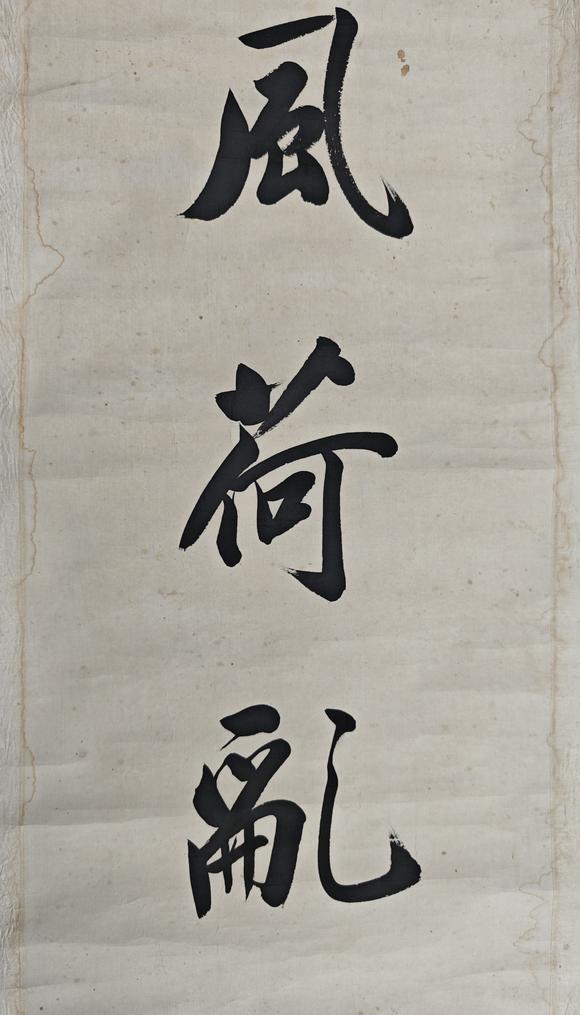 風荷亂